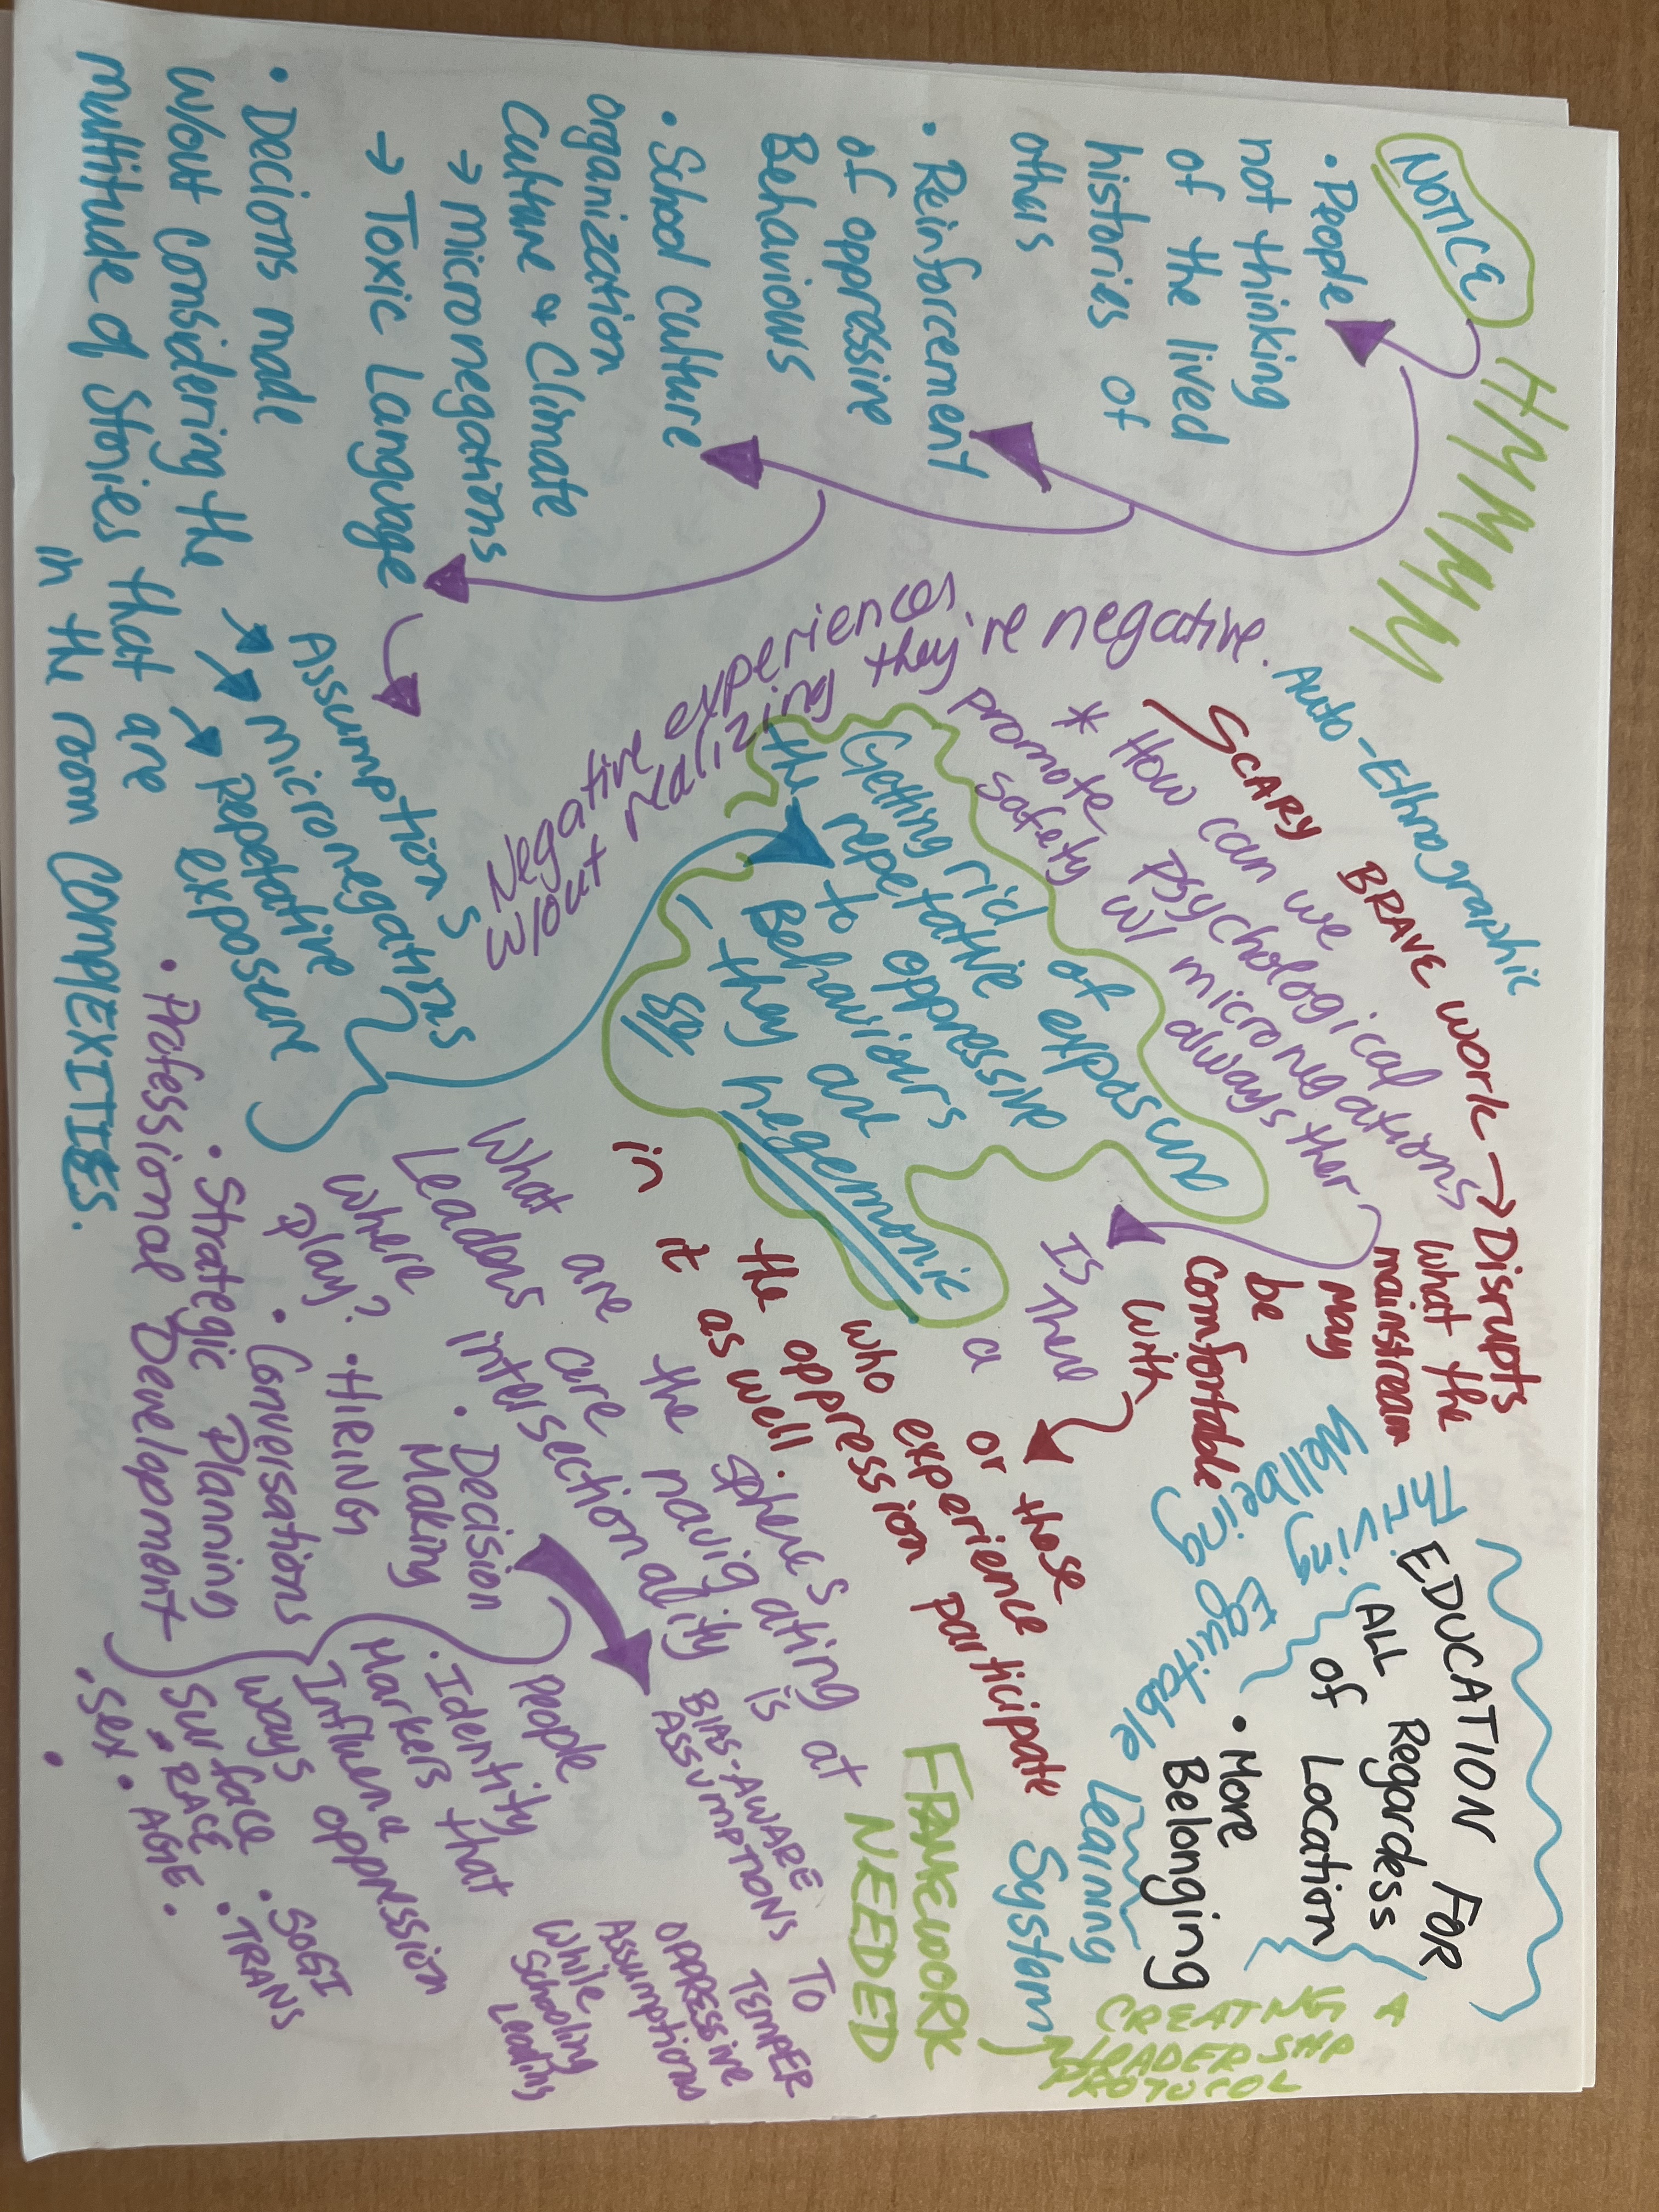 NOTICE
HMMMM
• People
not thinking
of the lived
histories of
others
• Reinforcement
of oppressive
Behaviours
• School culture
organization
Culture & Climate
→ micronegations
→ Toxic Language
• Decions made
w/out considering the
multitude of stories that are
in the room COMPLEXITIES.
Assumptions
micronegations
repetative
exposure
Negative experiences
w/out realizing they're negative.
Auto-Ethnographic
SCARY BRAVE WORK → Disrupts
what the
mainstream
may
be
comfortable
with
or those
who experience
the oppression participate
in it as well.
* How can we
promote Psychological
safety w/ micronegations
always ther
Getting rid of exposure
the repetative
to oppressive
Behaviours
- they are
hegemonic
Is there a
What are the spheres at
Leaders are navigating is
where intersectionality
Play?
• Decision
Making
• HIRING
• Conversations
• Strategic Planning
• Professional Development
people
• Identity
Markers that
Influence oppression
ways
surface
• SOGI
• RACE • TRANS
• Sex • AGE •
•
BIAS-AWARE TO
ASSUMPTIONS TEMPER
OPPRESSIVE
Assumptions
while
Schooling
Leading
EDUCATION FOR
ALL Regardess
of Location
• More
Belonging
Thriving
Wellbeing
Equitable Learning
System
FRAMEWORK
NEEDED
CREATNG A
LEADERSHP
PROTOCOL